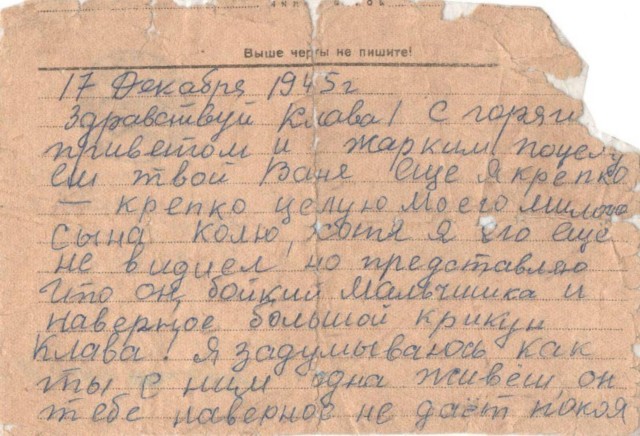 Выше черты не пишите!
17 Декабря 1945 г
Здравствуй Клава! С горячи
приветом и жарким поцелу
ем твой Ваня еще я крепко
— крепко целую моего милого
сына Колю, хотя я его еще
не видиел, но представляю
что он бойкий мальчишка и
наверное большой крикун
Клава! Я задумываюсь как
ты с ним одна живеш, он
тебе наверное не дает покоя